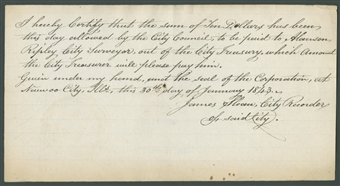 I hereby Certify that the sum of Ten Dollars has been
this day allowed by the City Council, to be paid to Alanson
Ripley City Surveyor, out of the City Treasury, which Amount
the City Treasurer will please pay him.
Given under my hand, and the seal of the Corporation, at
Nauvoo City, Ills, this 30th day of January 1843.
James Sloan, City Recorder
of said City.